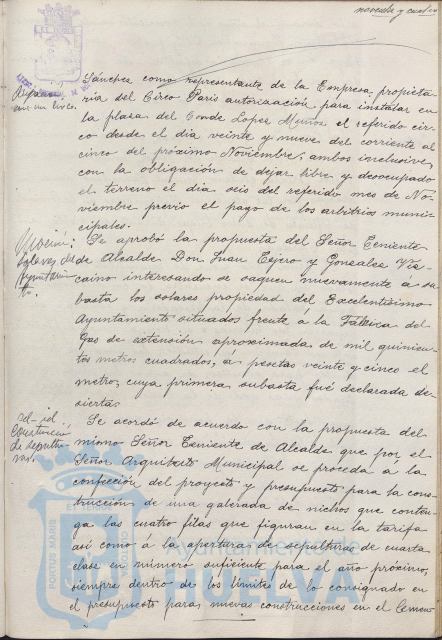 noventa y cuatro
Sánchez como representante de la Empresa propieta-
ria del Circo París autorización para instalar en
la plaza del Conde Lopez Muñoz el referido cir-
co desde el día veinte y nueve del corriente al
cinco del próximo Noviembre, ambos inclusive,
con la obligación de dejar libre y desocupado
el terreno el día seis del referido mes de No-
viembre previo el pago de los arbitrios muni-
cipales.
Moción:
Se aprobó la propuesta del Señor Teniente
de Alcalde Don Juan Tejero y Gonzalez Viz-
caino interesando se saquen nuevamente a su-
basta los solares propiedad del Excelentísimo
Ayuntamiento situados frente á la Fábrica del
Gas de extensión aproximada de mil quinien-
tos metros cuadrados, á pesetas veinte y cinco el
metro, cuya primera subasta fué declarada de-
sierta.
id. id.
Construcción
de sepultu-
ras.
Se acordó de acuerdo con la propuesta del
mismo Señor Teniente de Alcalde que por el
Señor Arquitecto Municipal se proceda á la
confección del proyecto y presupuesto para la cons-
trucción de una galerada de nichos que conten-
ga las cuatro filas que figuran en la tarifa
así como á la apertura de sepulturas de cuarta
clase en número suficiente para el año próximo,
siempre dentro de los límites de lo consignado en
el presupuesto para nuevas construcciones en el Cemen-
PORTUS MARIS
Ayuntamiento de
HUELVA